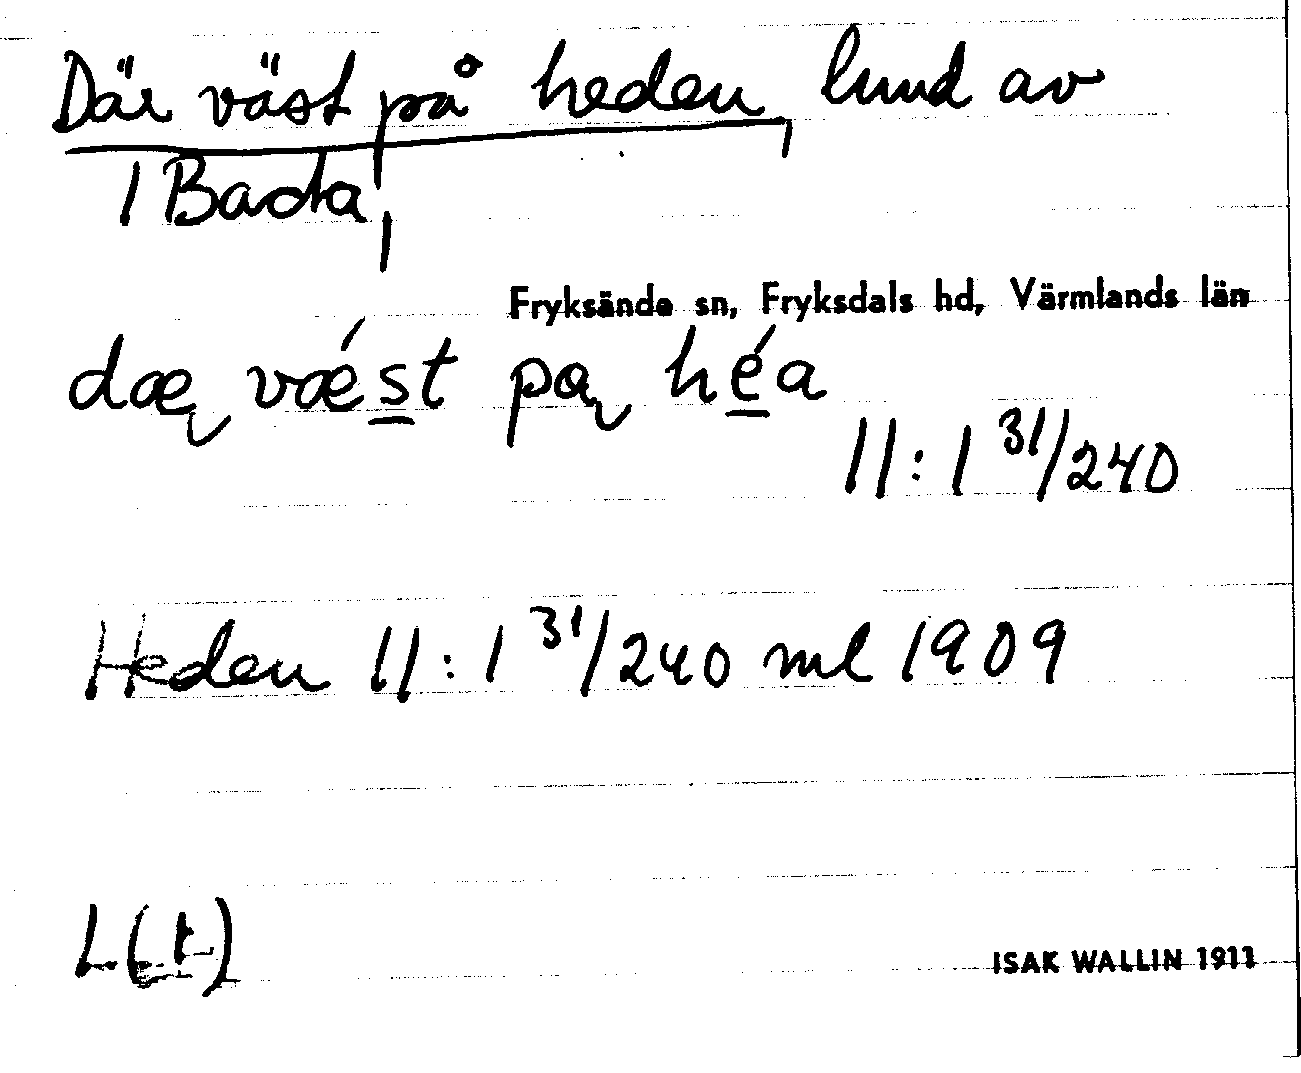 Där väst på heden, lund av
1 Bada,
Fryksände sn, Fryksdals hd, Värmlands län
dæ vǽst pa héa
11:1 31/240
Heden 11:1 31/240 ml 1909
L(t)
ISAK WALLIN 1911